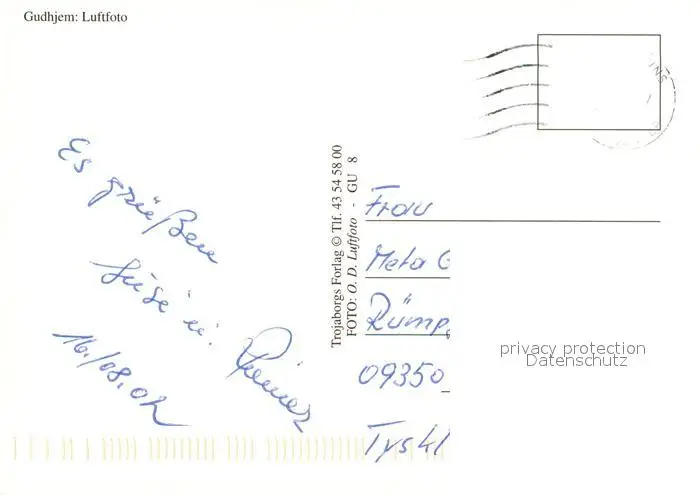 Gudhjem: Luftfoto
Es grüßen
Suse u.
16./08.02
Trojaborgs Forlag © Tlf. 43 54 58 00
FOTO: O. D. Luftfoto · GU 8
Frau
Meta G
Rümp
09350
Tyskl
privacy protection
Datenschutz